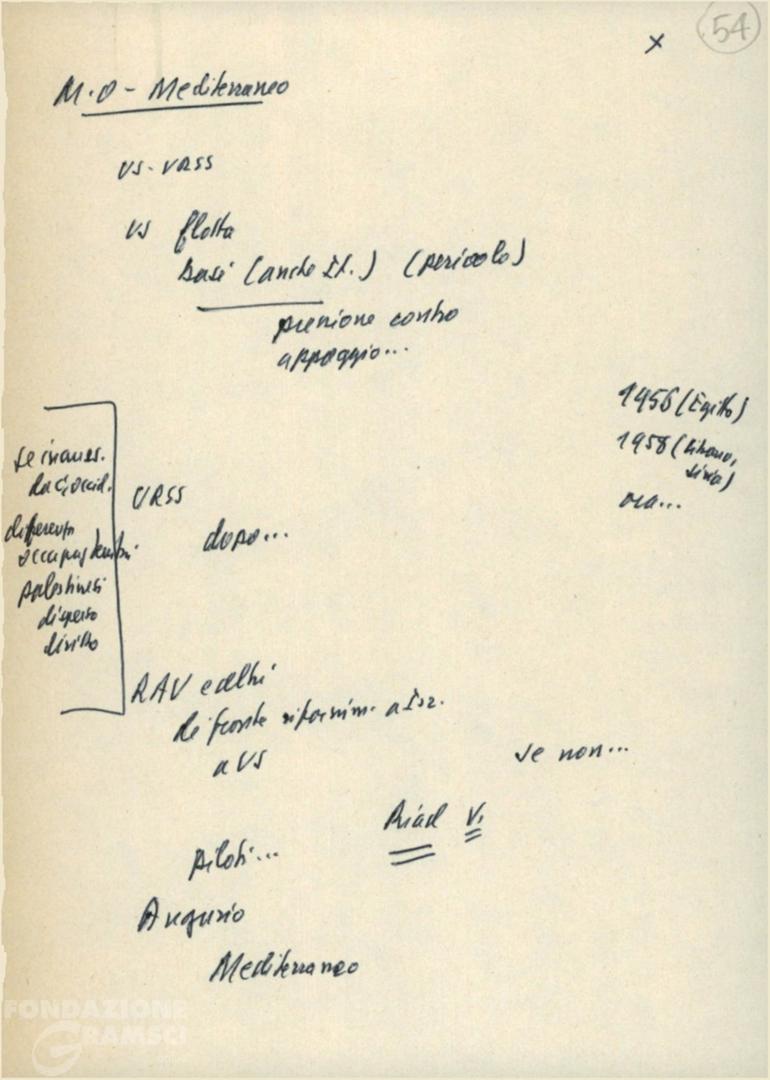 54
x
M.O - Mediterraneo
US-URSS
US flotta
basi (anche It.) (pericolo)
pressione contro
appoggio...
1956 (Egitto)
1958 (Libano,
Siria)
ora...
URSS
dopo...
occupaz territori
palestinesi
disperso
diritto
RAU e altri
di fronte rifornim. a Isr.
a US
se non...
Riad V.
piloti...
Augurio
Mediterraneo
FONDAZIONE
GRAMSCI